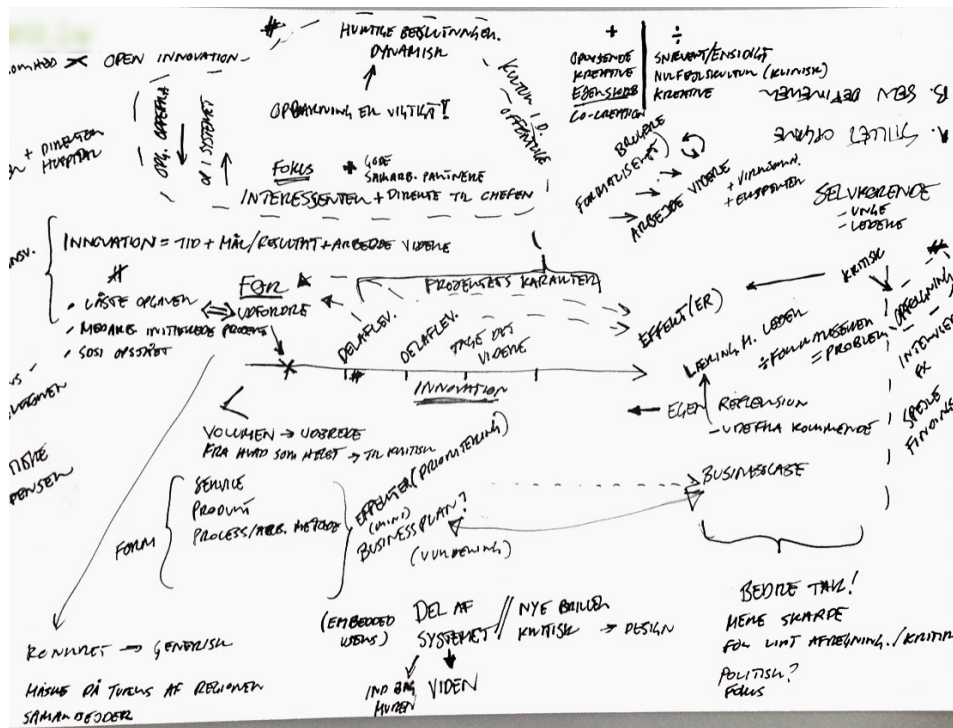 HURTIGE BESLUTNINGER.
DYNAMISK
OPBAKNING ER VIGTIGT!
OPEN INNOVATION
OP I SYSTEMET
KULTUR I D.
OFFENTLIGE
FOKUS
+ GODE
SAMARB. PARTNERE
INTERESSENTER + DIREKTE TIL CHEFEN
+ DIREKTØR
HOSPITAL
+
KREATIVE
EJERSKAB
CO-CREATION
÷
SNÆVERT/ENSIDIGT
NULFEJLSKULTUR (KLINISK)
KREATIVE
BRUGERE
FORMALISERET
ARBEJDE VIDERE
+ VIRKSOMH.
+ EKSPERTER
B. SEN DETTENEN
A. STILLET OPGAVE
SELVKØRENDE
- UNGE
- LEDERE
INNOVATION = TID + MÅL/RESULTAT + ARBEJDE VIDERE
#
• LÅSTE OPGAVER
• MEDARB. INITIEREDE PROJEKT
• SOSU OPSTÅET
FØR
UDFORDRE
PROJEKTETS KARAKTER
DELAFLEV.
DELAFLEV.
TAGE DET
VIDERE
INNOVATION
EFFEKT(ER)
KRITISK
OPFØLGNING
LÆRING M. LEDER
÷ FORMALISEREN
= PROBLEM
INTERVIEW
FX
SPEJLE
FINDINGS
EGEN REFLEKSION
- UDEFRA KOMMENDE
VOLUMEN → UDBREDE
FRA HVAD SOM HELST → TIL KRITISK
FORM
SERVICE
PRODUKT
PROCESS/ARB. METODE
EFFEKTER (PRIORITERING)
(MINI)
BUSINESSPLAN?
(VURDERING)
BUSINESSCASE
BEDRE TAL!
MERE SKARPE
FOR LIDT AFREGNING./KRITIK
POLITISK?
FOKUS
(EMBEDDED
USERS)
DEL AF
SYSTEMET
// NYE BRILLER
KRITISK → DESIGN
IND BAG
MUREN
VIDEN
KONKRET → GENERISK
MÅSKE PÅ TVÆRS AF REGIONEN
SAMARBEJDER